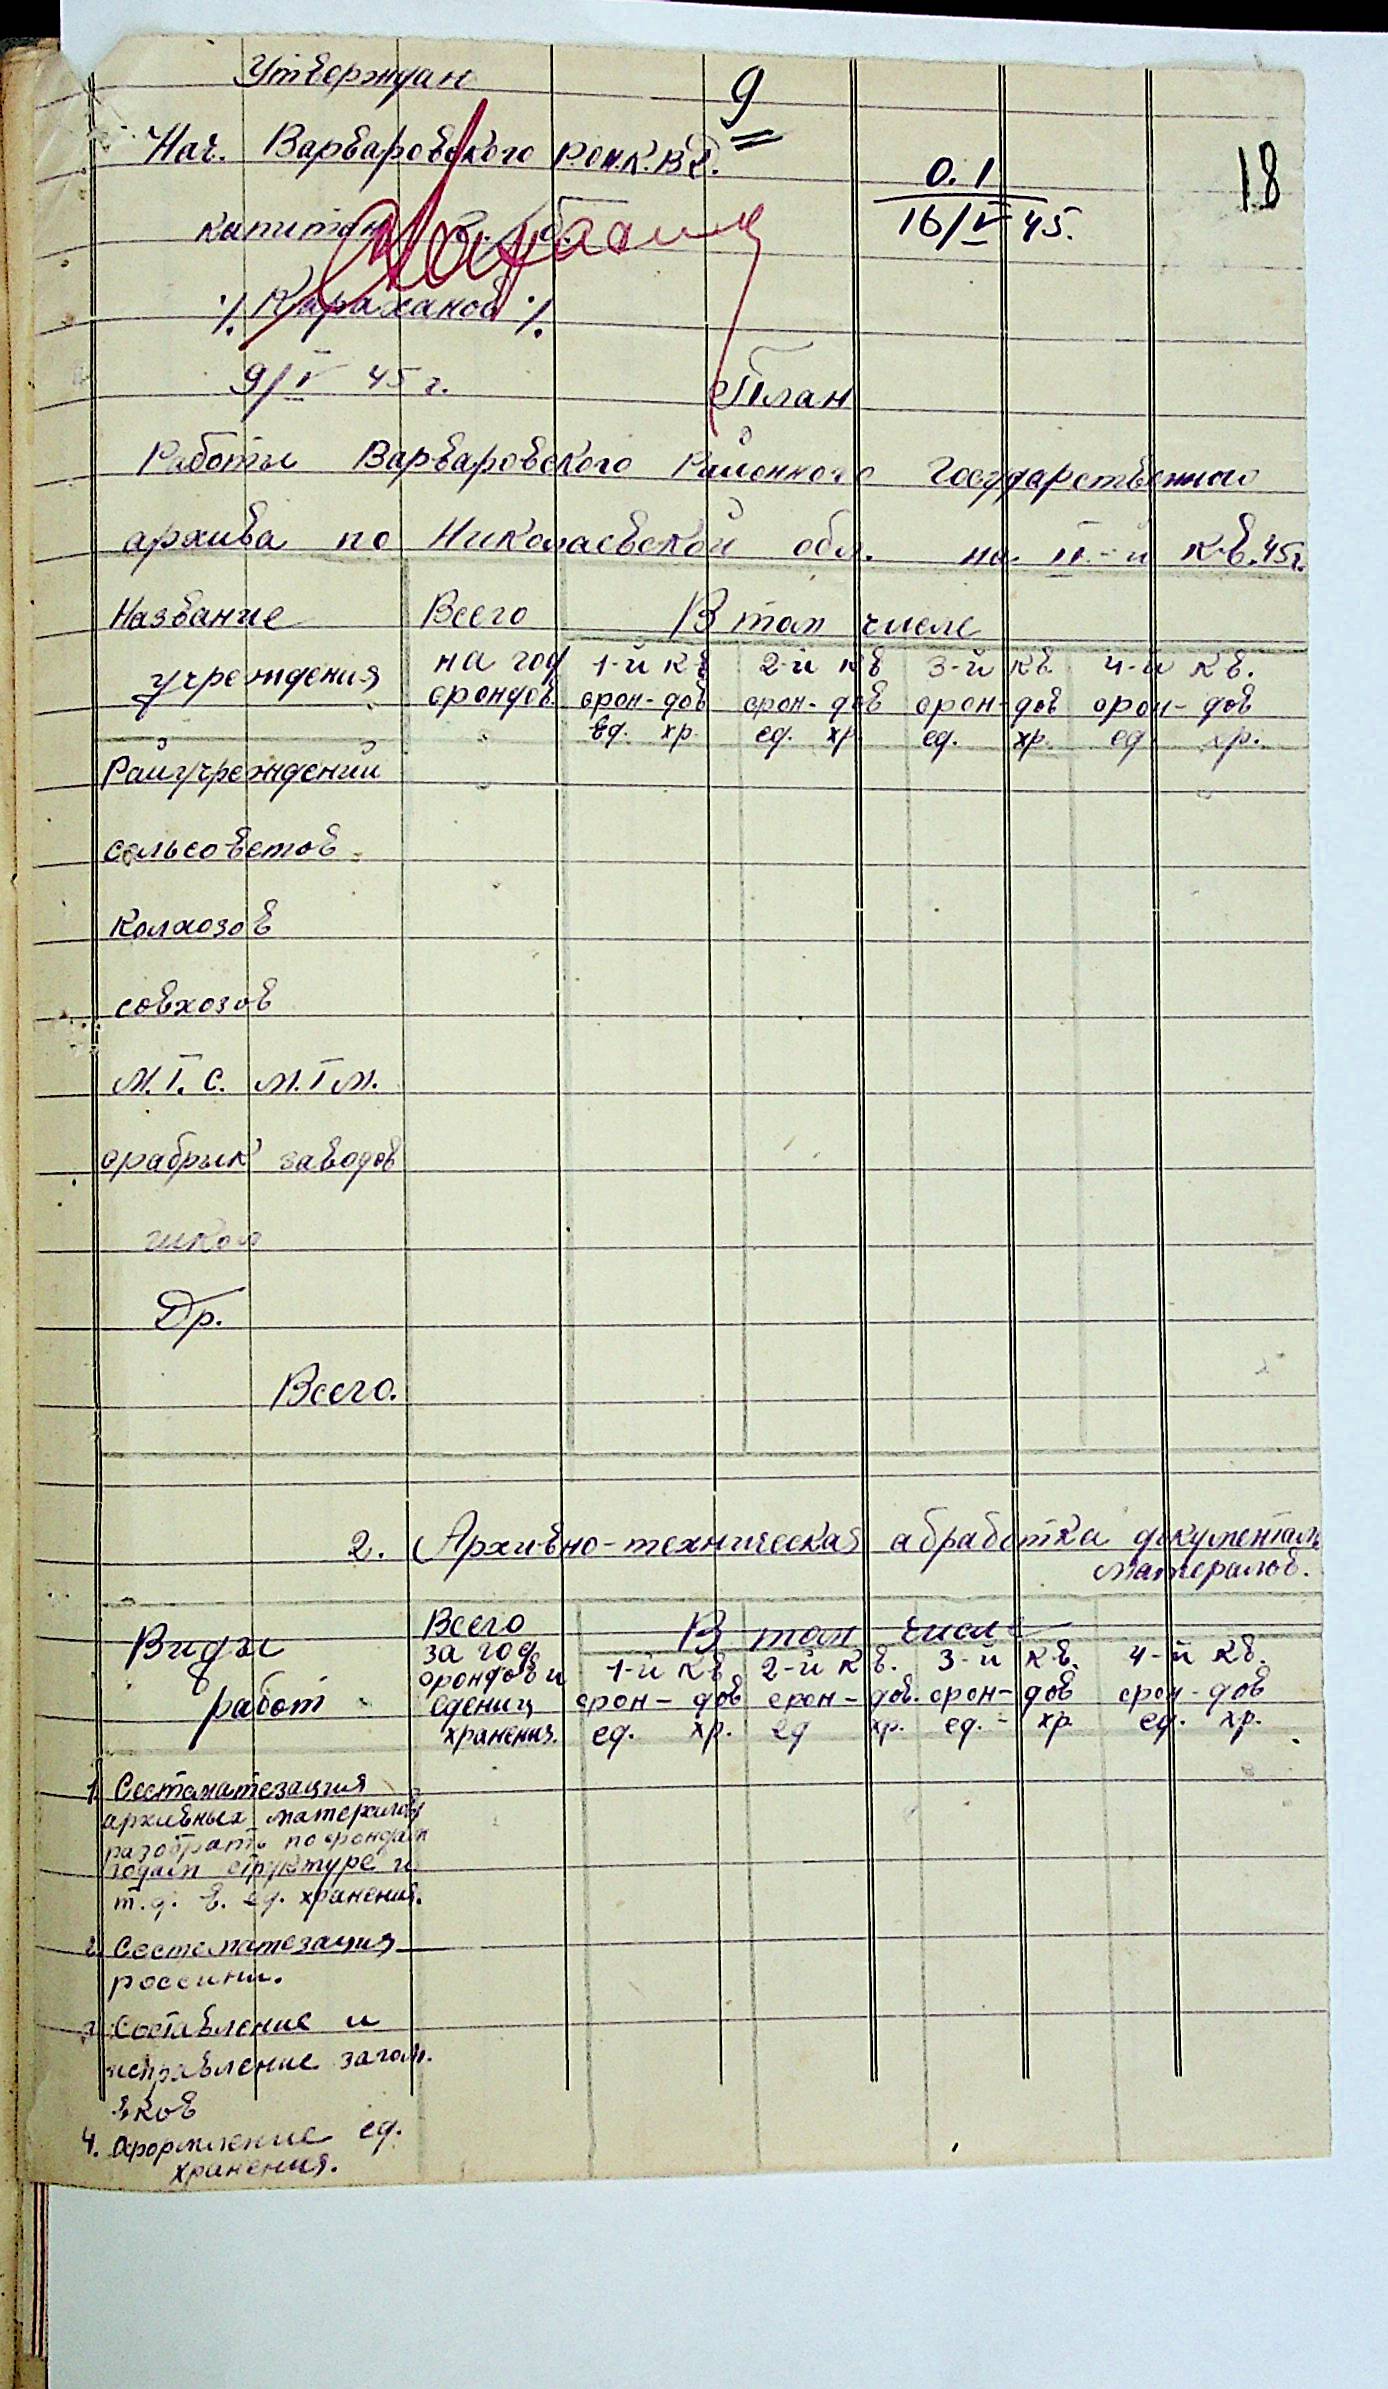 Утверждаю
9
Нач. Варваровского РО Н.К.В.Д.
18
О. 1
16/V 45.
капитан
/. Караханов ./.
9/V 45 г.
План
Работы Варваровского Районного Государственного
архива по Николаевской обл. на II-й К-в. 45г.
Название Всего В том числе
учреждения на год 1-й кв 2-й кв 3-й кв. 4-й кв.
фондов фон-дов фон-дов фон-дов фон-дов
ед. хр. ед. хр. ед. хр. ед. хр.
Райучреждений
сельсоветов
Колхозов
совхозов
М.Т.С. М.Т.М.
фабрык заводов
школ
Др.
Всего.
2. Архивно-техническая абработка документаль
матералов.
Виды Всего В том числе
за год 1-й кв. 2-й кв. 3-й кв. 4-й кв.
фондов и
работ едениц фон-дов фон-дов. фон-дов фон-дов
хранения. ед. хр. ед хр. ед. хр. ед. хр.
1. Сестематезация
архивных матералов
разобрать по фондам
годам структуре и
т.д. в. ед. хранения.
2. Сестематезация
россыпи.
3. Составление и
исправление загол.
вков
4. Оформление ед.
хранения.